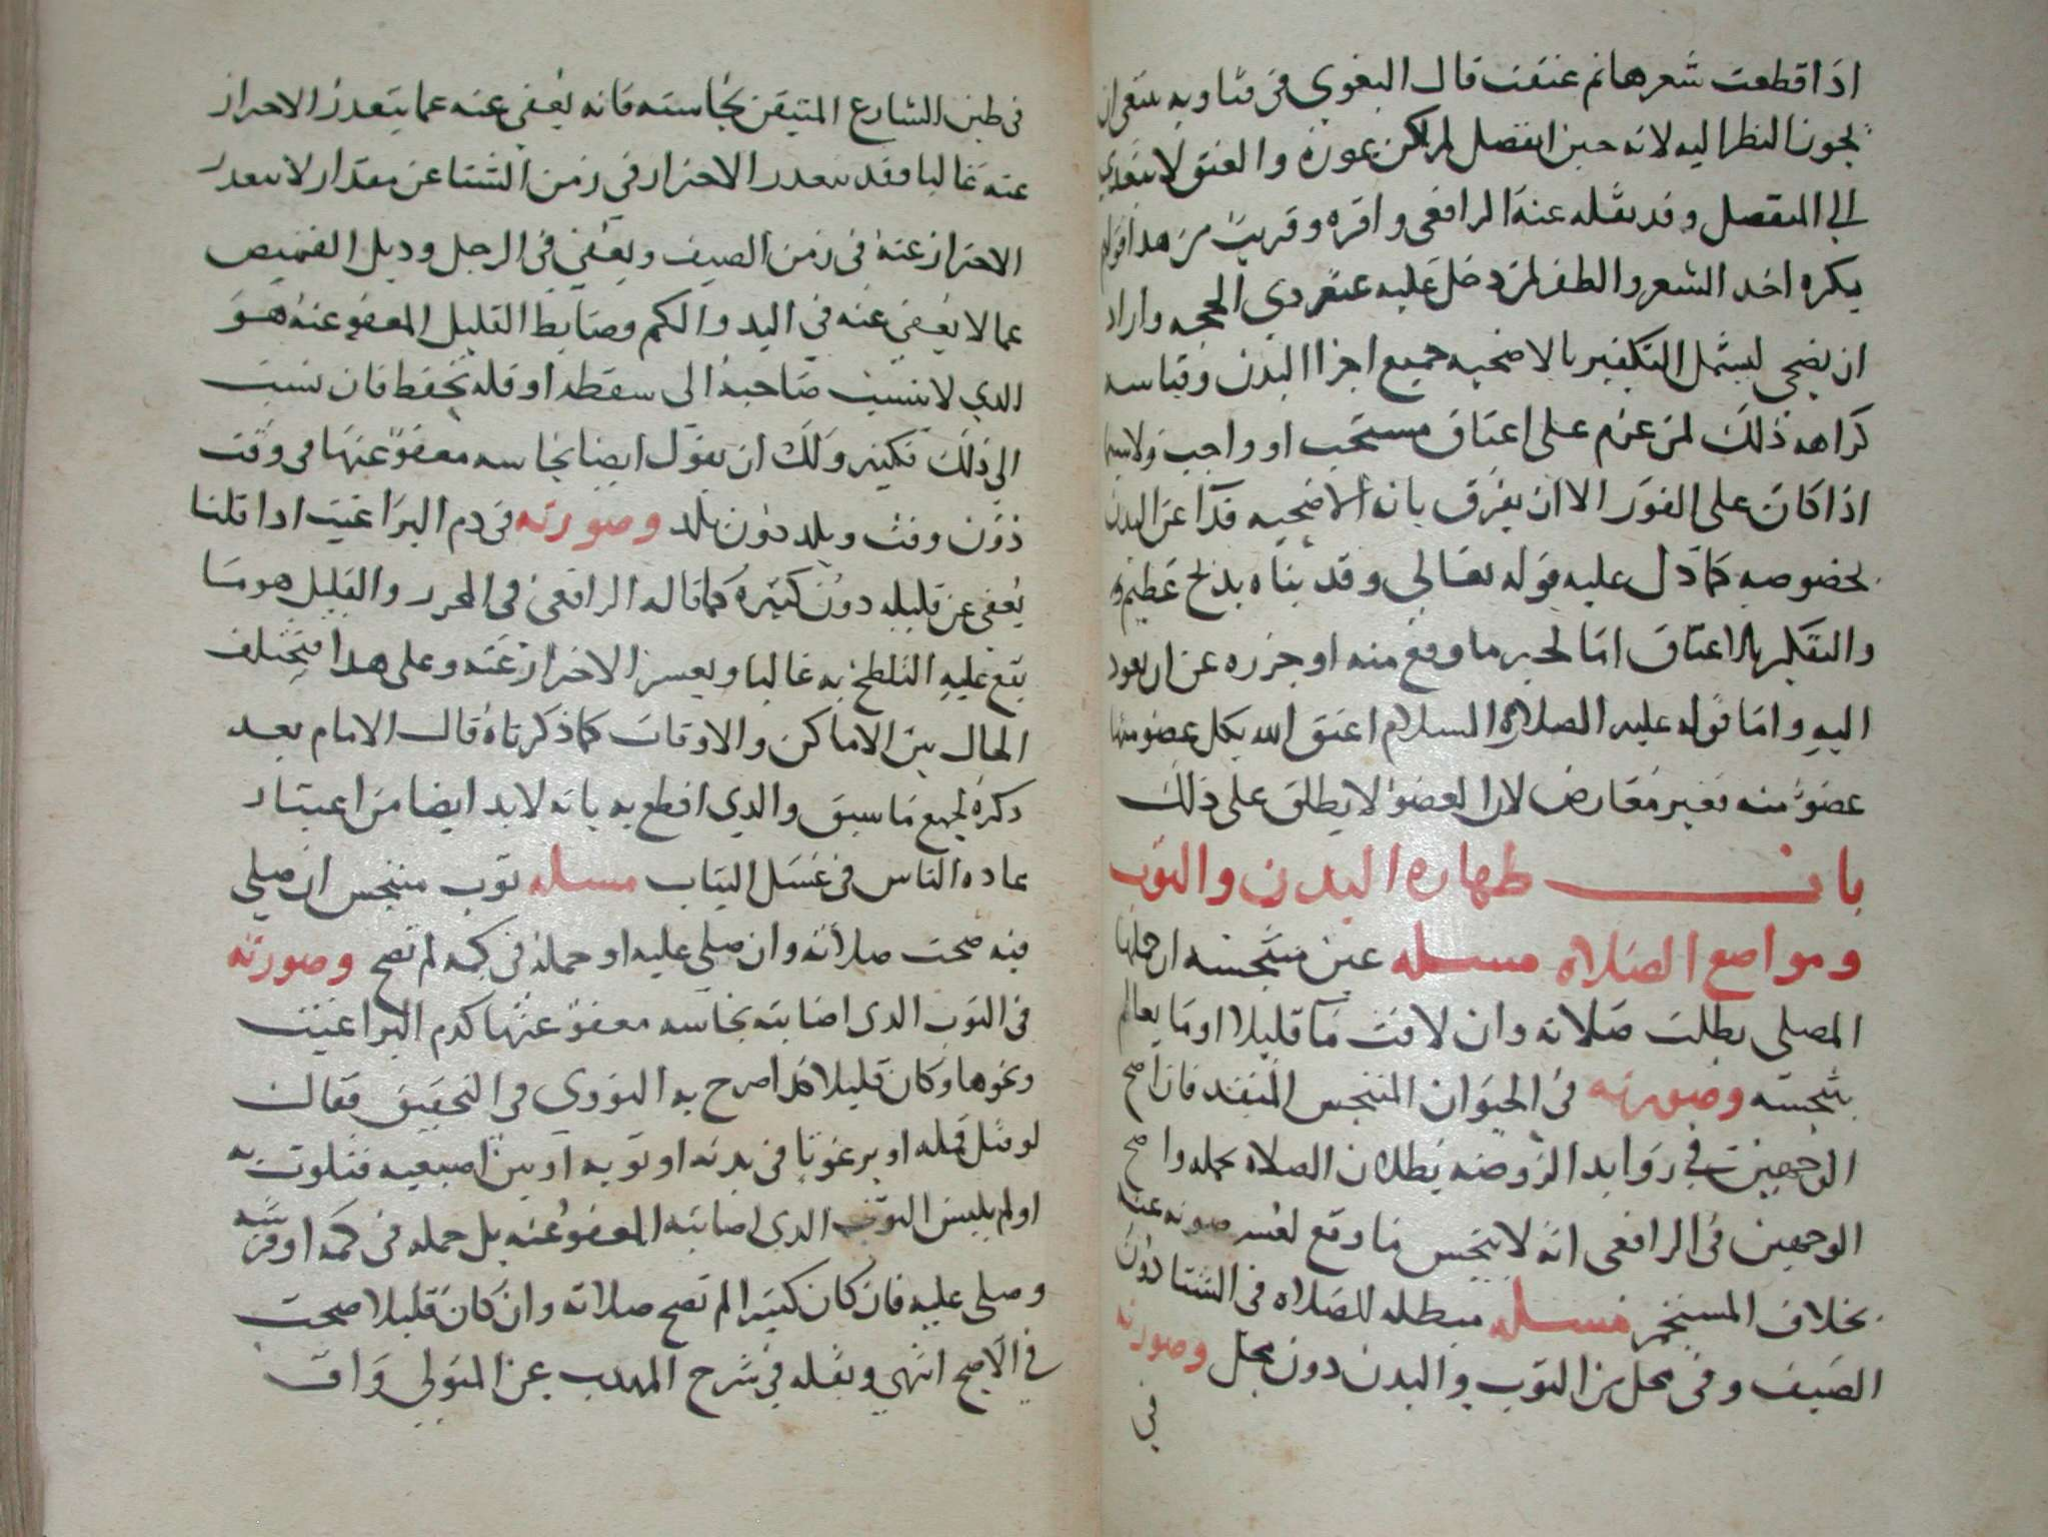 اذا قطعت شعرها ثم عتقت قال البغوي في فتاويه ينبغي ان
يجوز النظر اليه لانه حين انفصل لم يكن عورة والعتق لا يتعدي
الي المنفصل وقد نقله عنه الرافعي واقره وقريب من هذا قولهم
يكره اخد الشعر والظفر لمن دخل عليه عشر دي الحجه واراد
ان يضحي ليشمل التكفير بالاضحيه جميع اجزا البدن وقياسه
كراهه ذلك لمن عزم على اعتاق مستحب او واجب ولاسيما
اذا كان على الفور الا ان يفرق بان الاضحيه فدا عن البدن
بخصوصه كما دل عليه قوله تعالي وفديناه بذبح عظيم
والتكفير بالاعتاق اما لجبر ما وقع منه او جزره عن ان يعود
اليه واما قوله عليه الصلاة السلام اعتق الله بكل عضو منها
عضوا منه فغير معارض لان العضو لا يطلق على ذلك
باب طهاره البدن والثوب
ومواضع الصلاه مسله عين متنجسه ان حملها
المصلي بطلت صلاته وان لاقت ما قليلا او مايعا لم
ينجسه وصورته في الحيوان المتنجس المنفذ فان اصح
الوجهين في زوايد الروضه بطلان الصلاه بحمله واصح
الوجهين في الرافعي انه لا ينجس ما وقع لعسر صونه عنه
بخلاف المستجمر مسله مبطله للصلاه في الشتا دون
الصيف وفي محل من الثوب والبدن دون محل وصورته
في
في طين الشارع المتيقن نجاسته فانه يعفي عنه عما يتعدر الاحتراز
عنه غالبا فقد يتعدر الاحتراز في زمن الشتا عن مقدار لا يتعدر
الاحتراز عنه في زمن الصيف ويعفي في الرجل وديل القميص
عما لا يعفي عنه في اليد والكم وضابط القليل المعفو عنه هو
الدي لا ينسب صاحبه الى سقطه او قله تحفظ فان نسب
الي ذلك فكثير ولك ان تقول ايضا نجاسه معفو عنها في وقت
دون وقت وبلد دون بلد وصورته في دم البراغيث ادا قلنا
يعفي عن قليله دون كثيره كما قاله الرافعي في المحرر والقليل هو ما
يقع عليه التلطخ به غالبا ويعسر الاحتراز عنه وعلى هدا فيختلف
الحال بين الاماكن والاوقات كما ذكرناه قال الامام بعد
دكره لجميع ما سبق والدي اقطع به بانه لا بد ايضا من اعتبار
عاده الناس في غسل الثياب مسله ثوب متنجس ان صلي
فيه صحت صلاته وان صلي عليه او حمله في كمه لم تصح وصورته
في الثوب الدي اصابته نجاسه معفو عنها كدم البراغيث
ونحوها وكان قليلا كدا صرح به النووي في التحقيق فقال
لو قتل قمله او برغوثا في بدنه او ثوبه او بين اصبعيه فتلوث به
او لم يلبس الثوب الدي اصابته المعفو عنه بل حمله في كمه او فرشه
وصلي عليه فان كان كثيرا لم تصح صلاته وان كان قليلا صحت
في الاصح انتهي ونقله في شرح المهدب عن المتولي واق